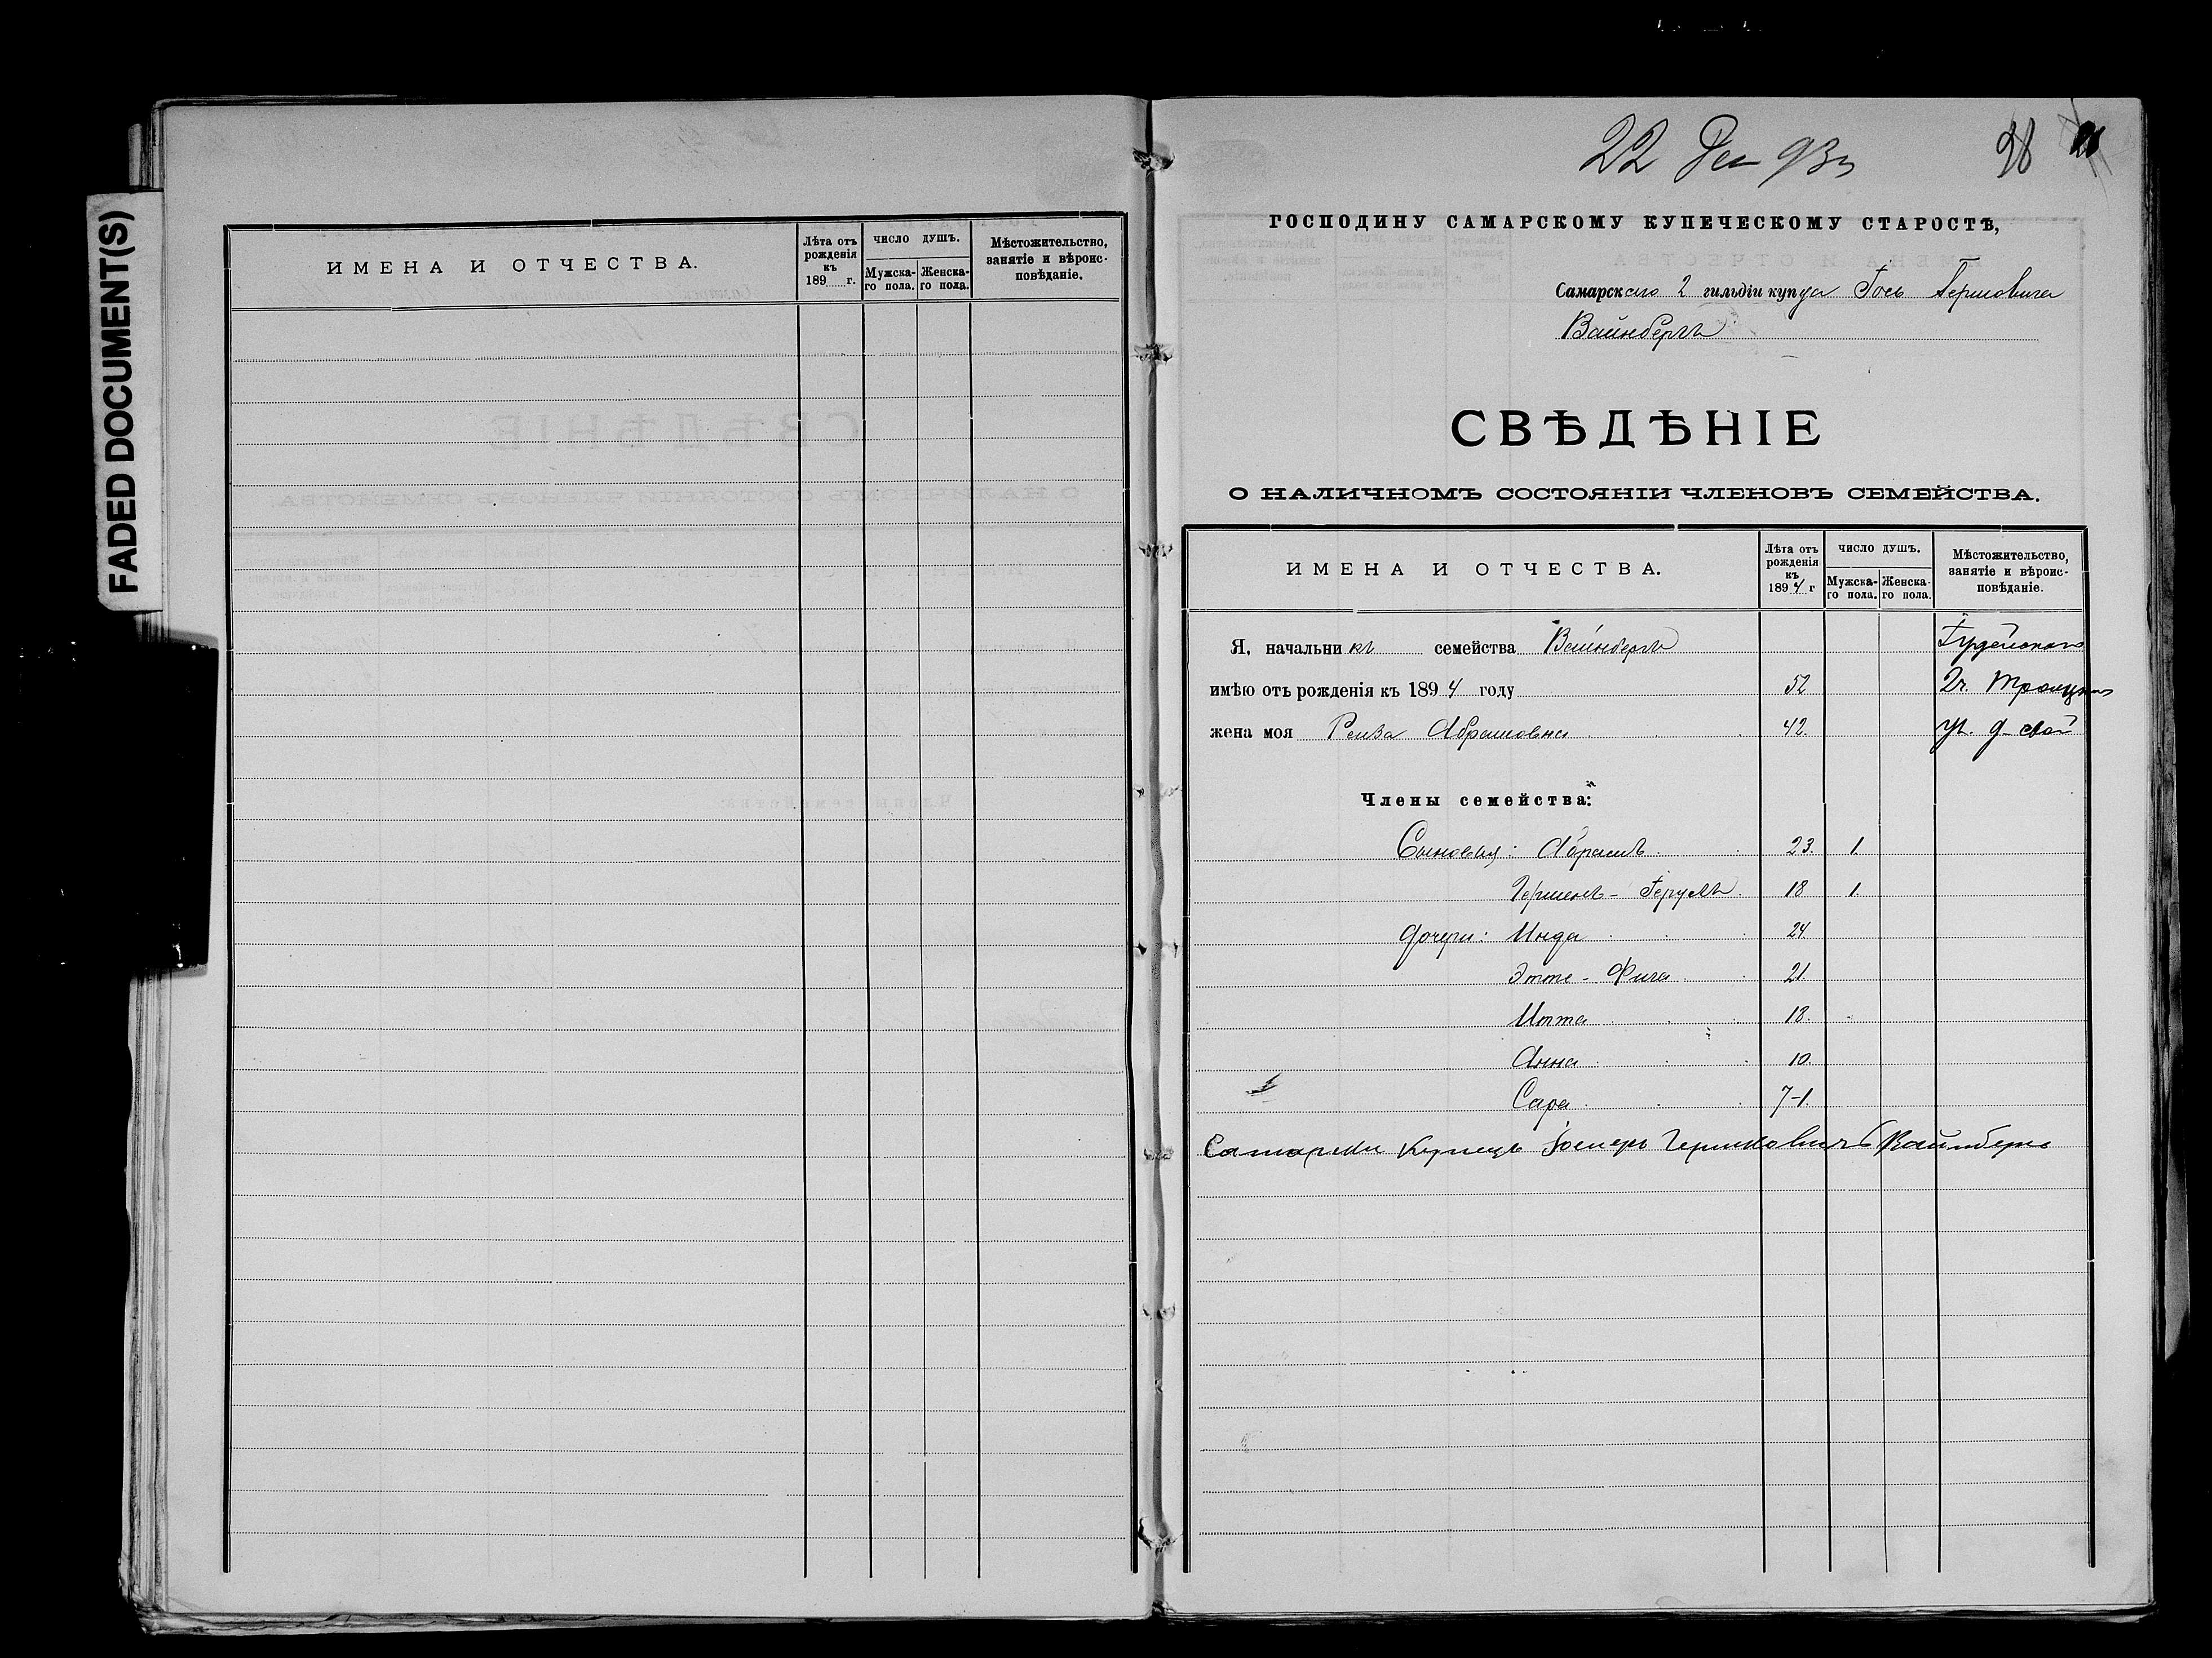 FADED DOCUMENT(S)
ИМЕНА И ОТЧЕСТВА.
Лѣта отъ рожденія къ 189 г.
число душъ.
Мужска-го пола.
Женска-го пола.
Мѣстожительство, занятіе и вѣроис-повѣданіе.
22 Дек 93 г
98
ГОСПОДИНУ САМАРСКОМУ КУПЕЧЕСКОМУ СТАРОСТѢ,
Самарскаго 2 гильдіи купца Іось Гершовича
Вайнбергъ
СВѢДѢНІЕ
О НАЛИЧНОМЪ СОСТОЯНІИ ЧЛЕНОВЪ СЕМЕЙСТВА.
ИМЕНА И ОТЧЕСТВА.
Лѣта отъ рожденія къ 1894 г
число душъ.
Мужска-го пола.
Женска-го пола.
Мѣстожительство, занятіе и вѣроис-повѣданіе.
Я, начальникъ семейства Вайнбергъ Іудейскаго
имѣю отъ рожденія къ 1894 году 52 2ч. Троицкая
жена моя Рейза Абрамовна 42. ул. д. свой
Члены семейства:
Сыновья: Абрамъ 23. 1.
Гершенъ- 18 1.
дочери: Инда 24
Этте - Фига 21.
Итта 18.
Анна 10.
Сара 7-1.
Самарски Купецъ Гершковичъ Вайнберг